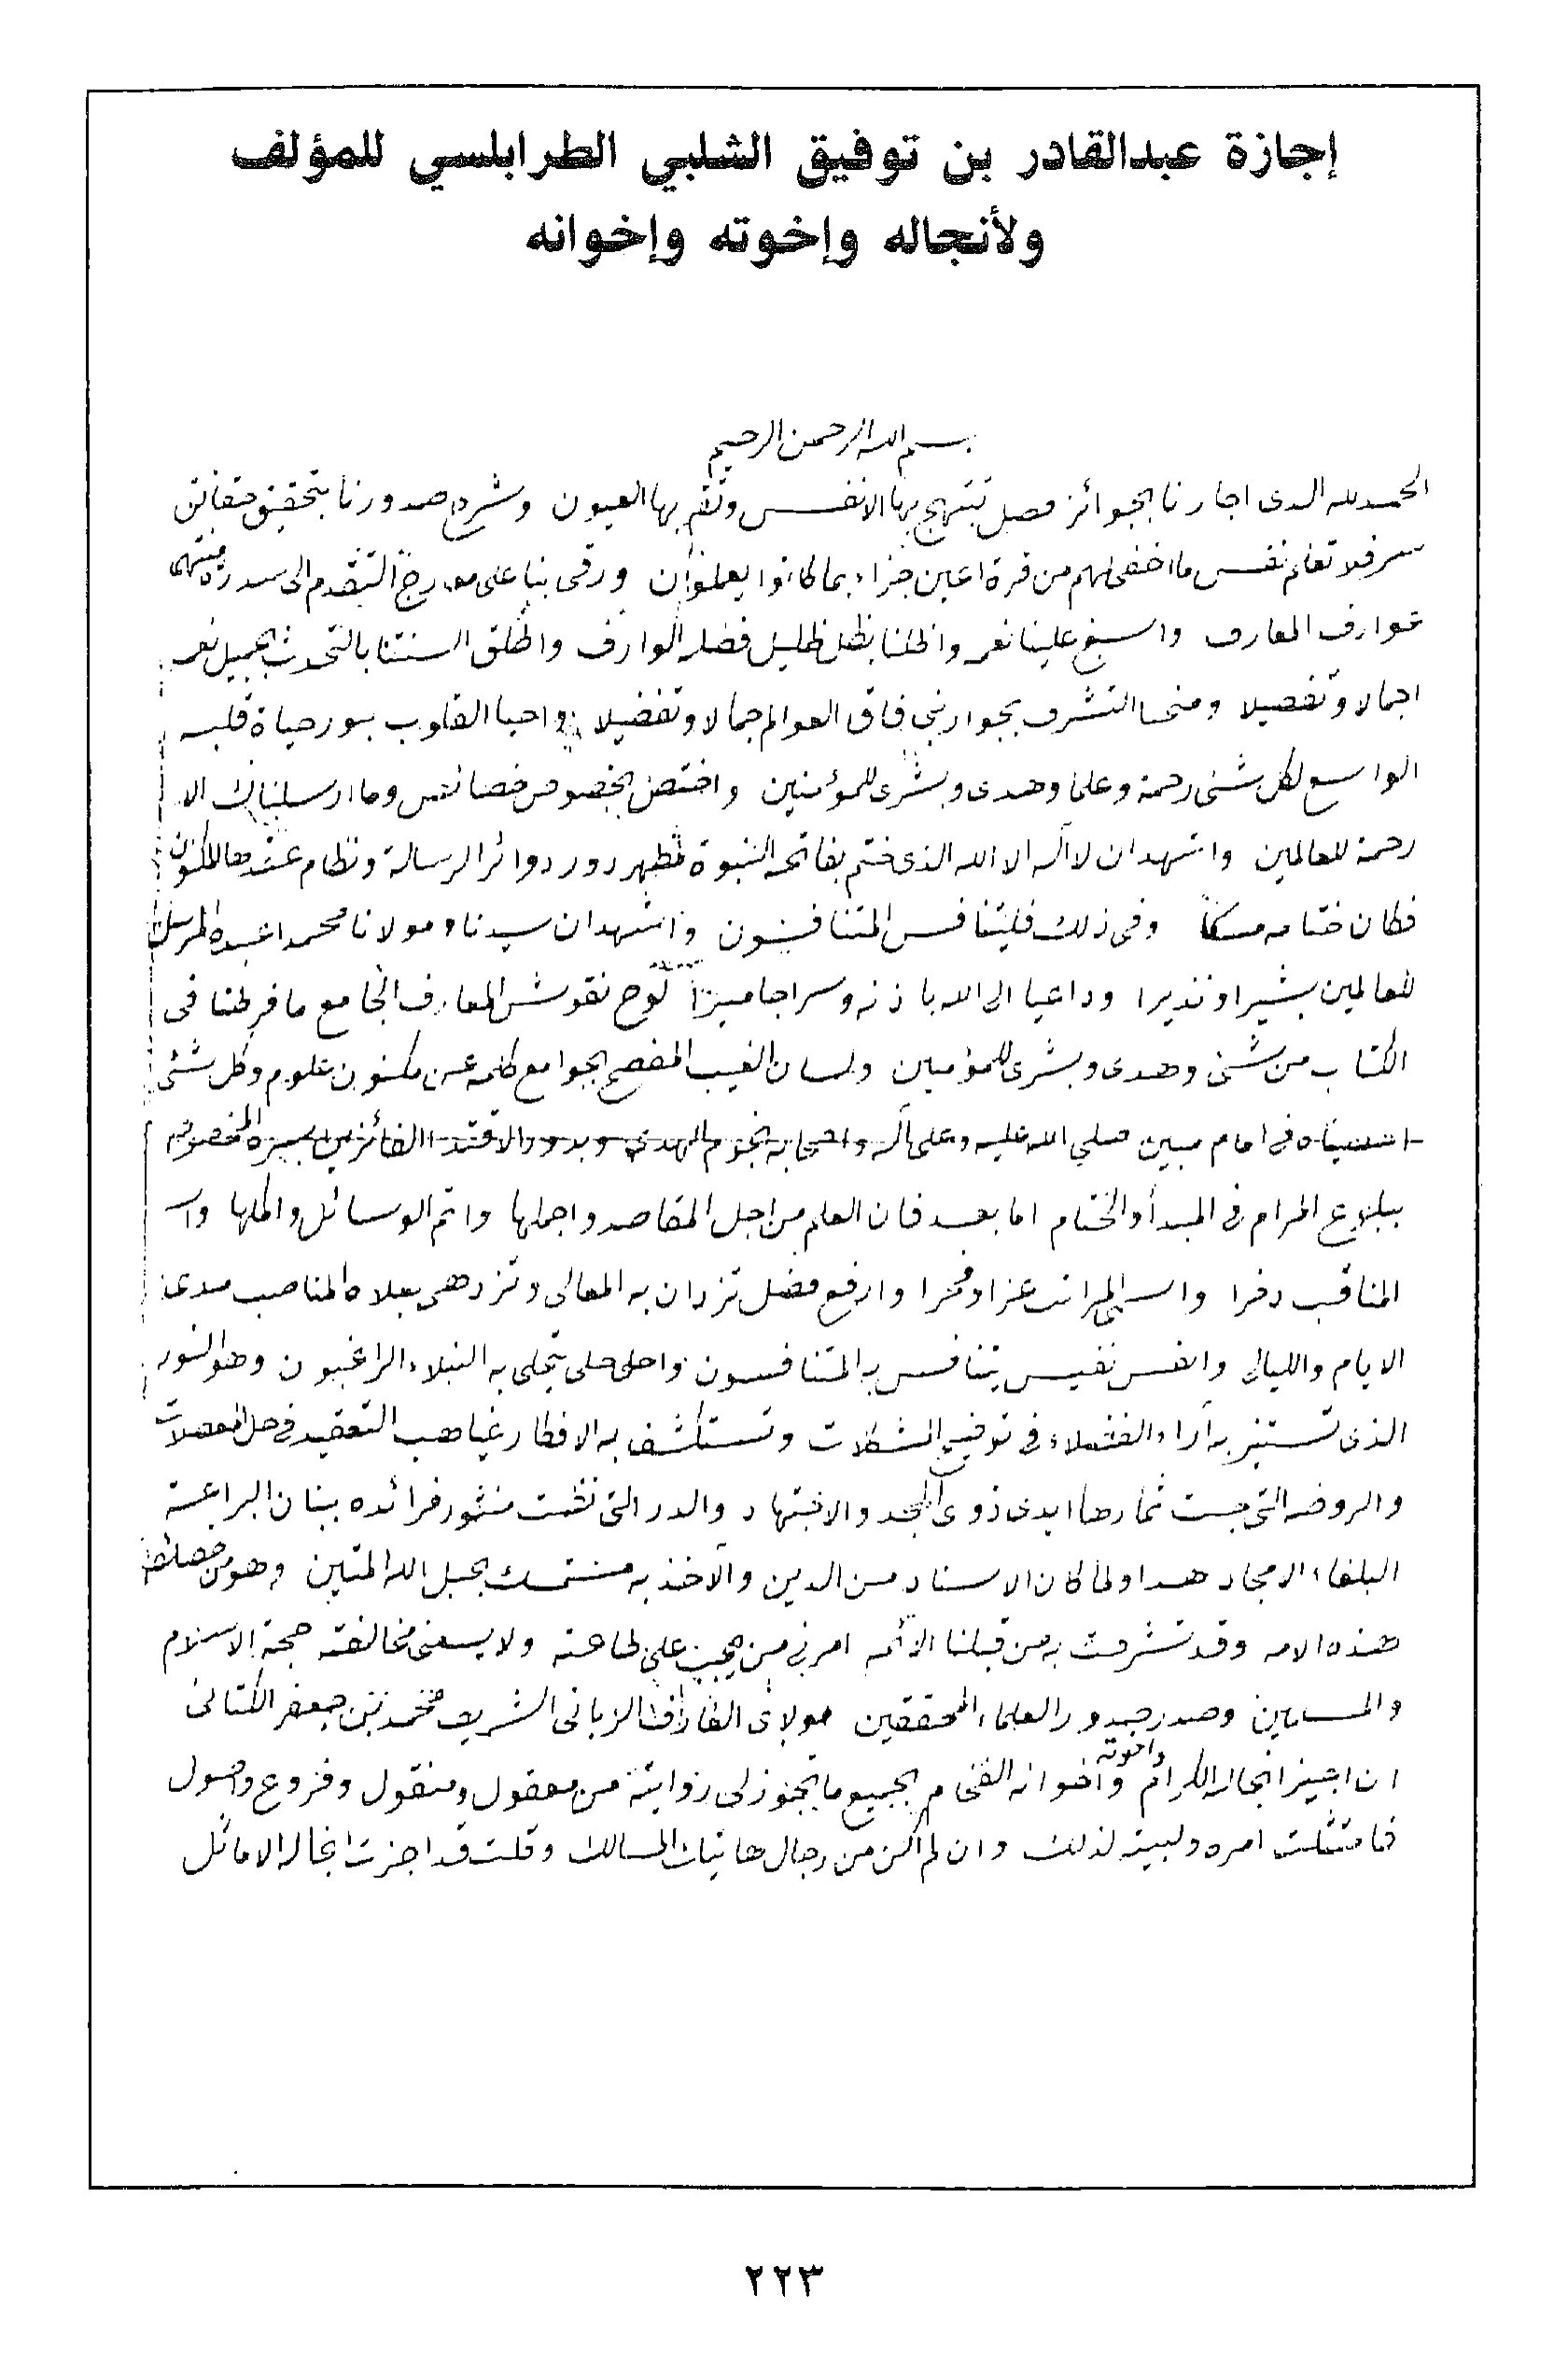 إجازة عبدالقادر بن توفيق الشلبي الطرابلسي للمؤلف
ولأنجاله وإخوته وإخوانه
بسم الله الرحمن الرحيم
الحمد لله الذى اجازنا بجوائز فضل تبتهج بها الانفس وتقر بها العيون وشرح صدورنا بتحقيق حقائق
سر فلا تعلم نفس ما اخفى لهم من قرة اعين جزاء بما كانوا يعملون ورقى بنا على معارج التقدم الى سدرة منتهى
عوارف المعارف واسبغ علينا نعمه واظلنا بظل ظليل فضله الوارف واطلق السنتنا بالتحدث بجميل نعمه
اجمالا وتفصيلا ومنحنا التشرف بجوار نبى فاق العوالم جمالا وتفضيلا واحيا القلوب بنور حياة قلبه
الواسع لكل شئ رحمة وعلما وهدى وبشرى للمؤمنين واختص بخصوص خصائص وما ارسلناك الا
رحمة للعالمين واشهد ان لا اله الا الله الذى ختم بفاتحة النبوة مظهر دور دوائر الرسالة ونظام عقدها المكنون
فكان ختامه مسكا وفى ذلك فليتنافس المتنافسون واشهد ان سيدنا ومولانا محمدا عبده المرسل
للعالمين بشيرا ونذيرا وداعيا الى الله باذنه وسراجا منيرا لوح نقوش المعارف الجامع ما فرطنا فى
الكتاب من شئ وهدى وبشرى للمؤمنين ولسان الغيب المفصح بجوامع كلمه عن مكنون علوم وكل شئ
احصيناه فى امام مبين صلى الله عليه وعلى آله واصحابه نجوم الهدى وبدور الاقتدا الفائزين
ببلوغ المرام فى المبدأ والختام اما بعد فان العلم من اجل المقاصد واجملها واتم الوسائل واكملها
المناقب واسمى المراتب عزا وفخرا وارفع فضل تزدان به المعالى وتزدهى بعلاه المناصب مدى
الايام والليالى وانفس نفيس يتنافس به المتنافسون واحلى حلى يتحلى به النبلاء الراغبون وهو النور
الذى تستنير به آراء الفضلاء فى توضيح المشكلات وتستكشف به الافكار غياهب التعقيد فى حل المعضلات
والروضه التى جنت ثمارها ايدى ذوى المجد والاجتهاد والدر التى نظمت منثور فرائده بنان البراعة
البلغاء الامجاد هذا ولما كان الاسناد من الدين والآخذ به متمسك بحبل الله المتين وهو من خصائص
هذه الامه وقد تشرفت به من قبلنا الائمه امرنى من يجب على طاعته ولا يسعنى مخالفته حجة الاسلام
والمسلمين وصدر صدور العلماء المحققين مولاى العارف الربانى الشريف محمد بن جعفر الكتانى
ان اجيز انجاله الكرام واخوته واخوانه الفخام بجميع ما تجوز لى روايته من معقول ومنقول وفروع واصول
فامتثلت امره ولبيت لذلك وان لم اكن من رجال هاتيك المسالك وقلت قد اجزت انجاله الاماثل
٢٢٣